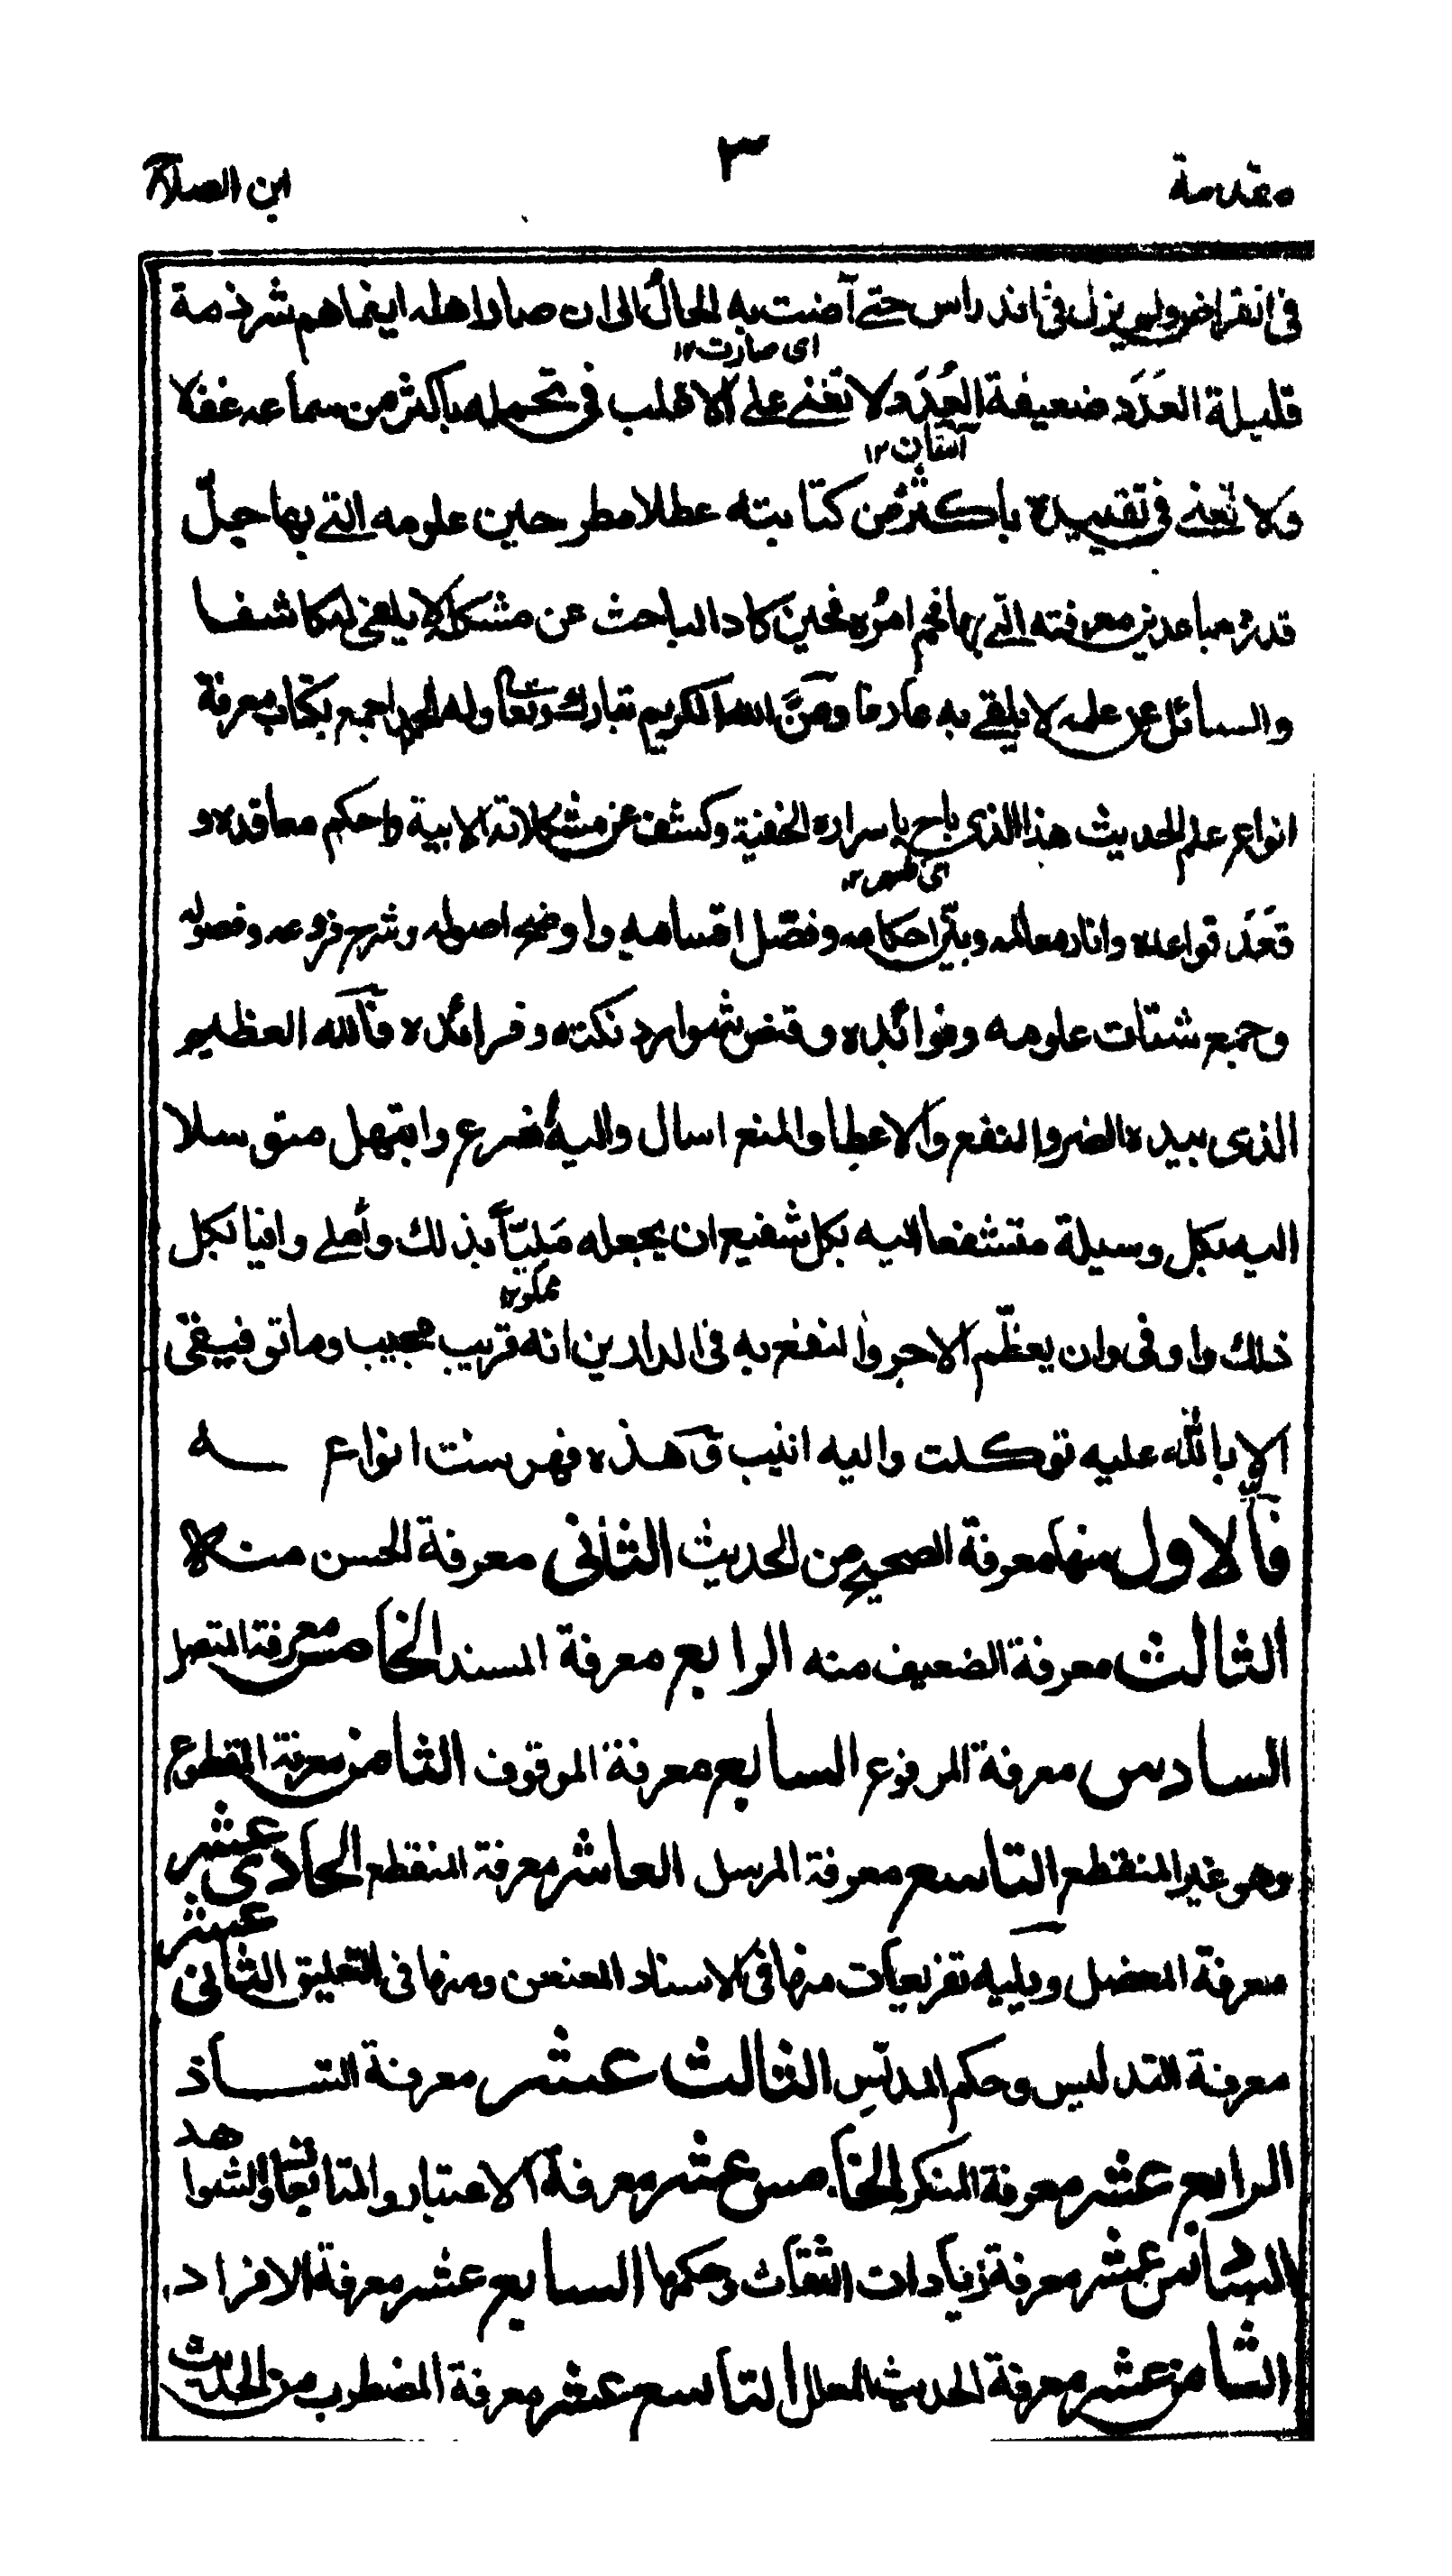 مقدمة ٣ ابن الصلاح
فى انقراض ولم يزل فى اندراس حتى آضت به الحال الى ان صار اهله انما هم شرذمة
اى صارت ١٢
قليلة العَدَد ضعيفة العُدَد لا تغنى على الاغلب فى تحمله باكثر من سماعه غفلا
ولا تعنى فى تقييده باكثر من كتابته عطلا مطرحين علومه التى بها جلّ
قدره مباعدين معرفته التى بها فخم امره فحين كاد الباحث عن مشكله لا يلفى له كاشفا
والسائل عن علمه لا يلقى به عارفا ومَنَّ الله الكريم تبارك وتعالى وله الحمد اجمع بكتاب معرفة
انواع علم الحديث هذا الذى باح باسراره الخفية وكشف عن مشكلاته الابية واحكم معاقده و
قَعَّدَ قواعده وانار معالمه وبيّن احكامه وفصّل اقسامه واوضح اصوله وشرح فروعه وفصوله
وجمع شتات علومه وفوائده وقنص شوارد نكته وفرائده فالله العظيم
الذى بيده الضر والنفع والاعطاء والمنع اسال واليه اضرع وابتهل متوسلا
اليه بكل وسيلة متشفعا اليه بكل شفيع ان يجعله مَليّاً بذلك وأملى وافيا بكل
ذلك واوفى وان يعظّم الاجر والنفع به فى الدارين انه قريب مجيب وما توفيقى
الا بالله عليه توكلت واليه انيب وهذه فهرست انواعه
فالاول منها معرفة الصحيح من الحديث الثانى معرفة الحسن منه
الثالث معرفة الضعيف منه الرابع معرفة المسند الخامس معرفة المتصل
السادس معرفة المرفوع السابع معرفة الموقوف الثامن معرفة المقطوع
وهو غير المنقطع التاسع معرفة المرسل العاشر معرفة المنقطع الحادى عشر
معرفة المعضل ويليه تفريعات منها فى الاسناد المعنعن ومنها فى التعليق الثانى عشر
معرفة التدليس وحكم المدلّس الثالث عشر معرفة الشاذ
الرابع عشر معرفة المنكر الخامس عشر معرفة الاعتبار والمتابعات والشواهد
السادس عشر معرفة زيادات الثقات وحكمها السابع عشر معرفة الافراد
الثامن عشر معرفة الحديث المعلل التاسع عشر معرفة المضطرب من الحديث